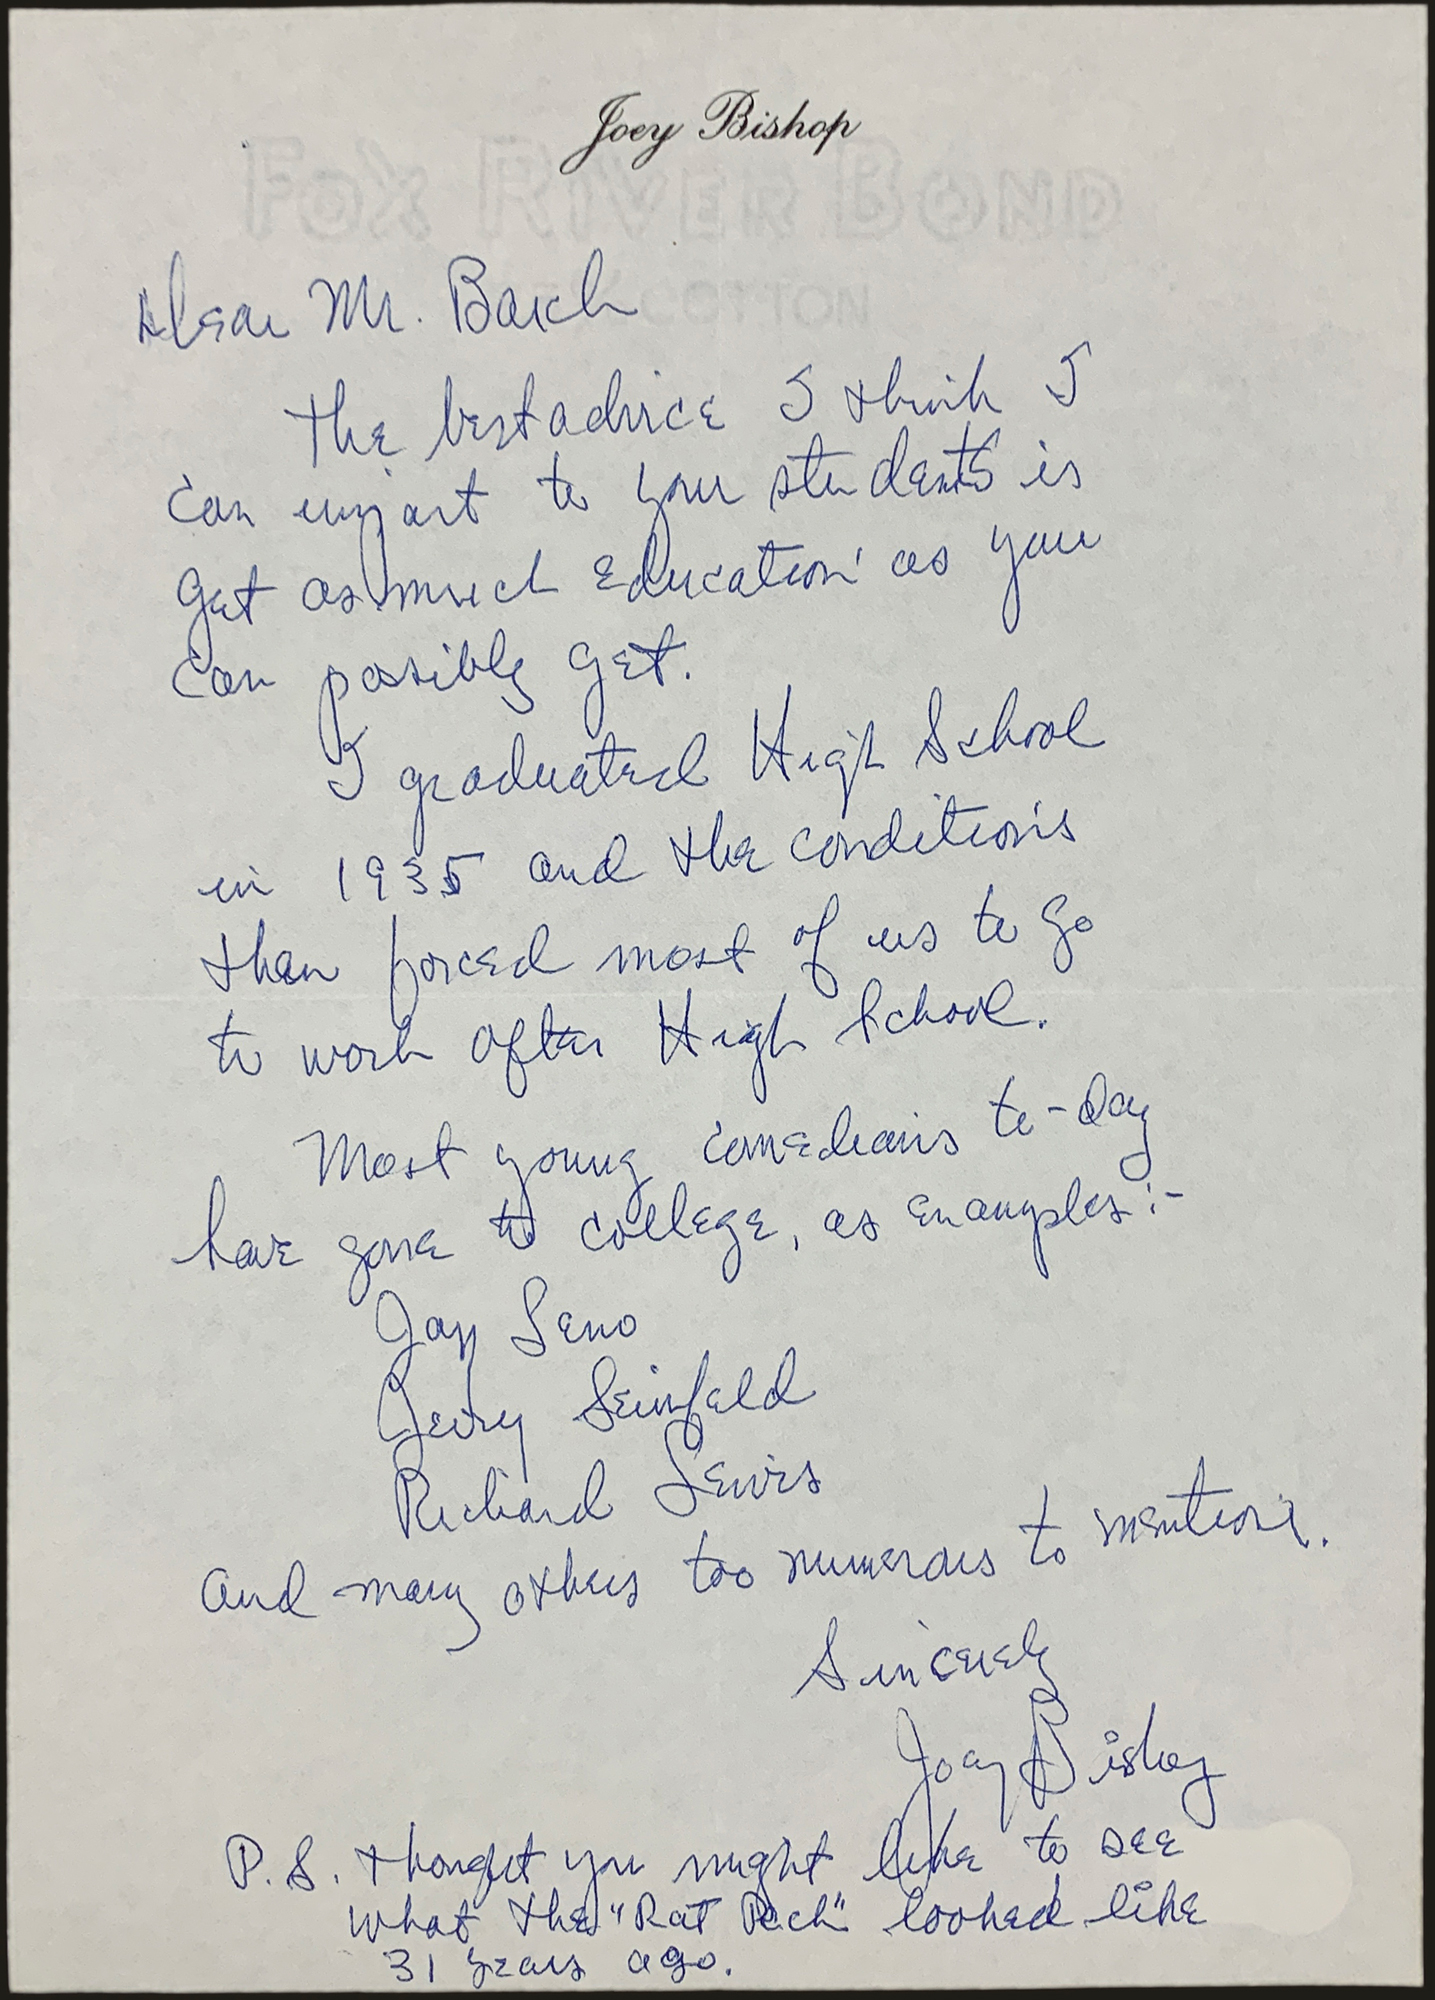 Joey Bishop
FOX RIVER BOND
COTTON
Dear Mr.
The best advice I think I
can impart to your students is
get as much education as you
can possibly get.
I graduated High School
in 1935 and the conditions
then forced most of us to go
to work after High School.
Most young comedians to-day
have gone to college, as examples:-
Jay Leno
Jerry Seinfeld
Richard Lewis
and many others too numerous to mention.
Sincerely
Joey Bishop
P.S. thought you might like to see
what the "Rat Pack" looked like
31 years ago.